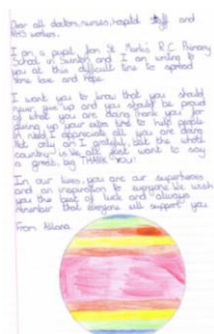 Dear all doctors, nurses, hospital staff and
NHS workers,
I am a pupil from St Mark's R.C. Primary
School in Swinton and I am writing to
you at this difficult time to spread
some love and hope.
I want you to know that you should
never give up and you should be proud
of what you are doing. Thank you for
giving up your own time to help people
in need. I appreciate all you are doing.
Not only am I grateful, but the whole
country is. We all just want to say
a great big "THANK YOU!
In our lives, you are our superheroes
and an inspiration to everyone. We wish
you the best of luck and always
remember that everyone will support you.
From